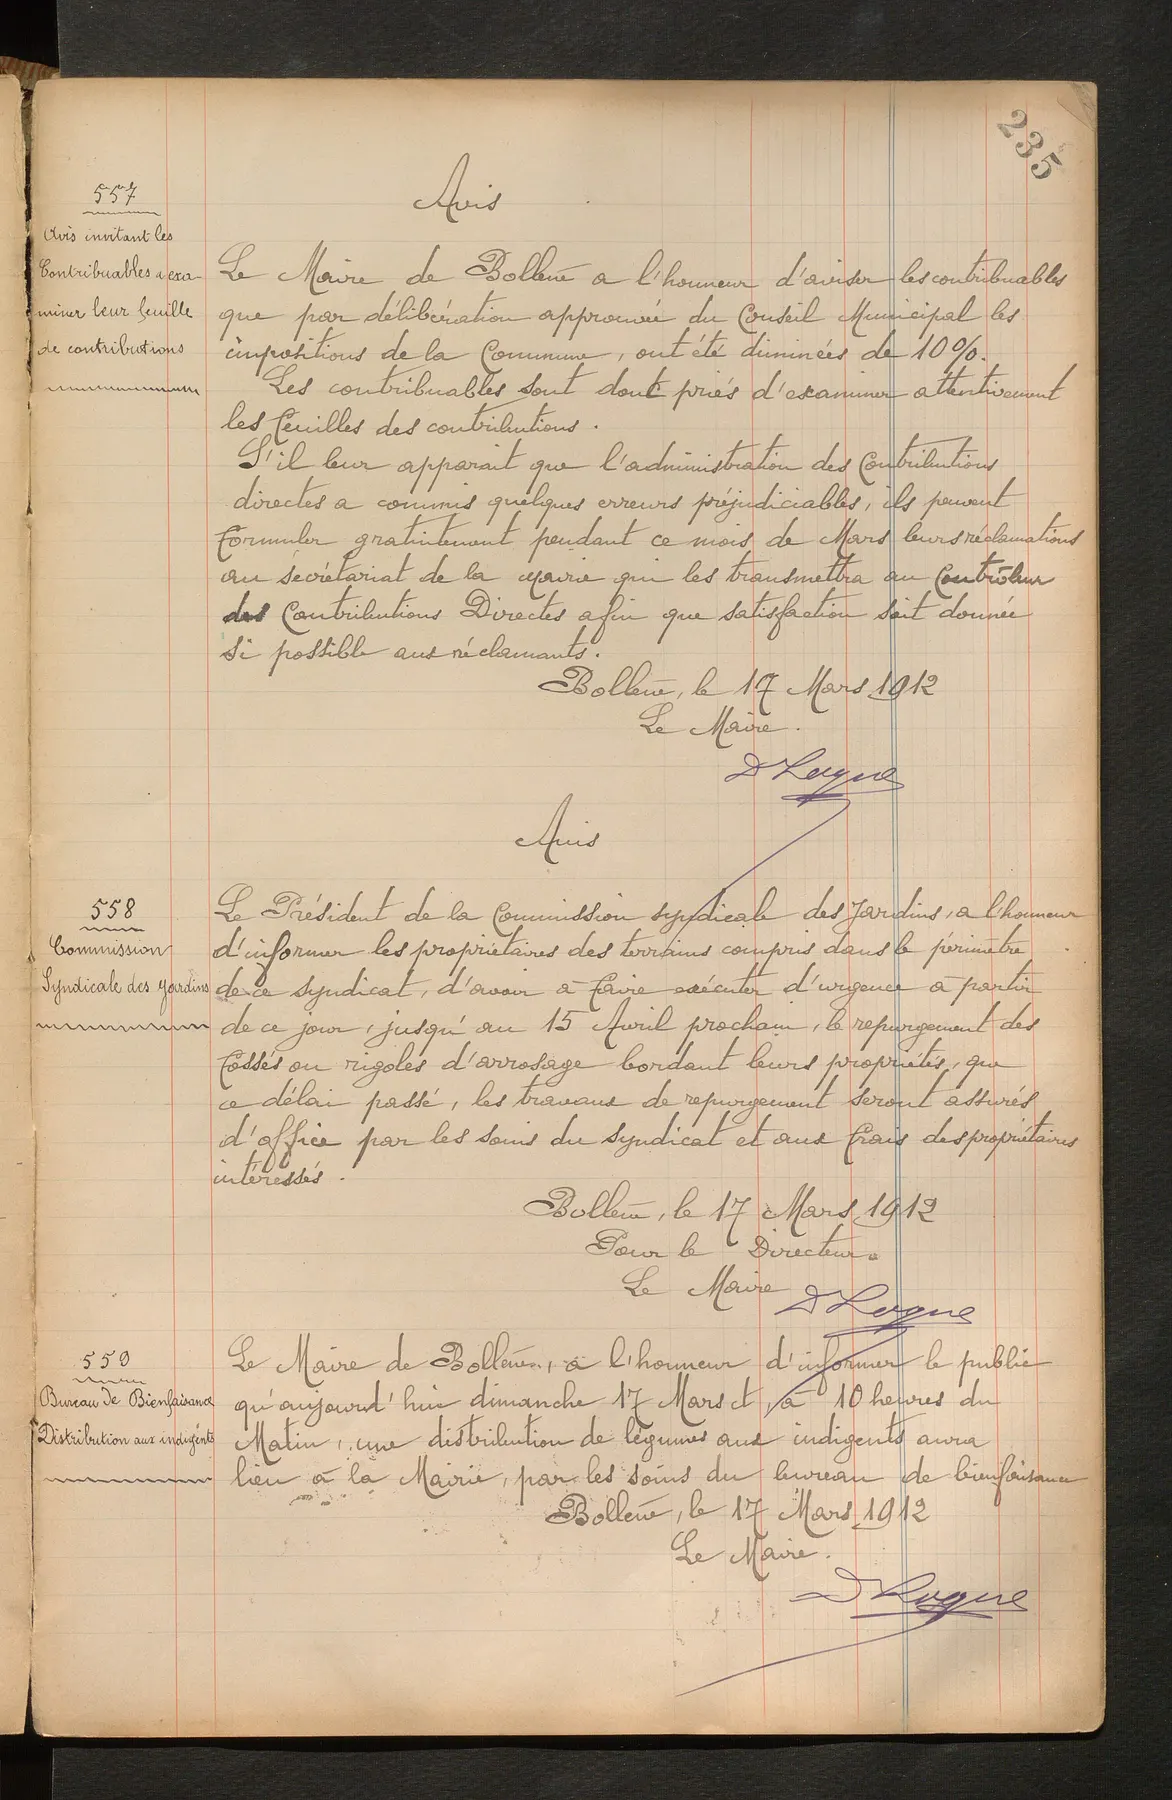 235
557
Avis invitant les
Contribuables a exa-
miner leur feuille
de contributions
Avis
Le Maire de Bollène a l'honneur d'aviser les contribuables
que par délibération approuvée du Conseil Municipal les
impositions de la Commune, ont été diminées de 10%.
Les contribuables sont donc priés d'examiner attentivement
les feuilles des contributions.
S'il leur apparait que l'administration des Contributions
directes a commis quelques erreurs préjudiciables, ils peuvent
formuler gratuitement pendant ce mois de Mars leurs réclamations
au secrétariat de la mairie qui les transmettra au Contrôleur
des Contributions Directes afin que satisfaction soit donnée
si possible aux réclamants.
Bollène, le 17 Mars 1912
Le Maire.
Avis
558
Commission
Syndicale des Jardins
Le Président de la Commission syndicale des Jardins, a l'honneur
d'informer les propriétaires des terrains compris dans le périmètre
de ce syndicat, d'avoir à faire exécuter d'urgence à partir
de ce jour, jusqu'au 15 Avril prochain, le repurgement des
fossés ou rigoles d'arrosage bordant leurs propriétés, que
ce délai passé, les travaux de repurgement seront assurés
d'office par les soins du syndicat et aux frais des propriétaires
intéressés.
Bollène, le 17 Mars 1912
Pour le Directeur.
Le Maire
559
Bureau de Bienfaisance
Distribution aux indigents
Le Maire de Bollène, a l'honneur d'informer le public
qu'aujourd'hui dimanche 17 Mars ct, à 10 heures du
Matin, une distribution de légumes aux indigents aura
lieu à la Mairie, par les soins du bureau de bienfaisance
Bollène, le 17 Mars 1912
Le Maire.